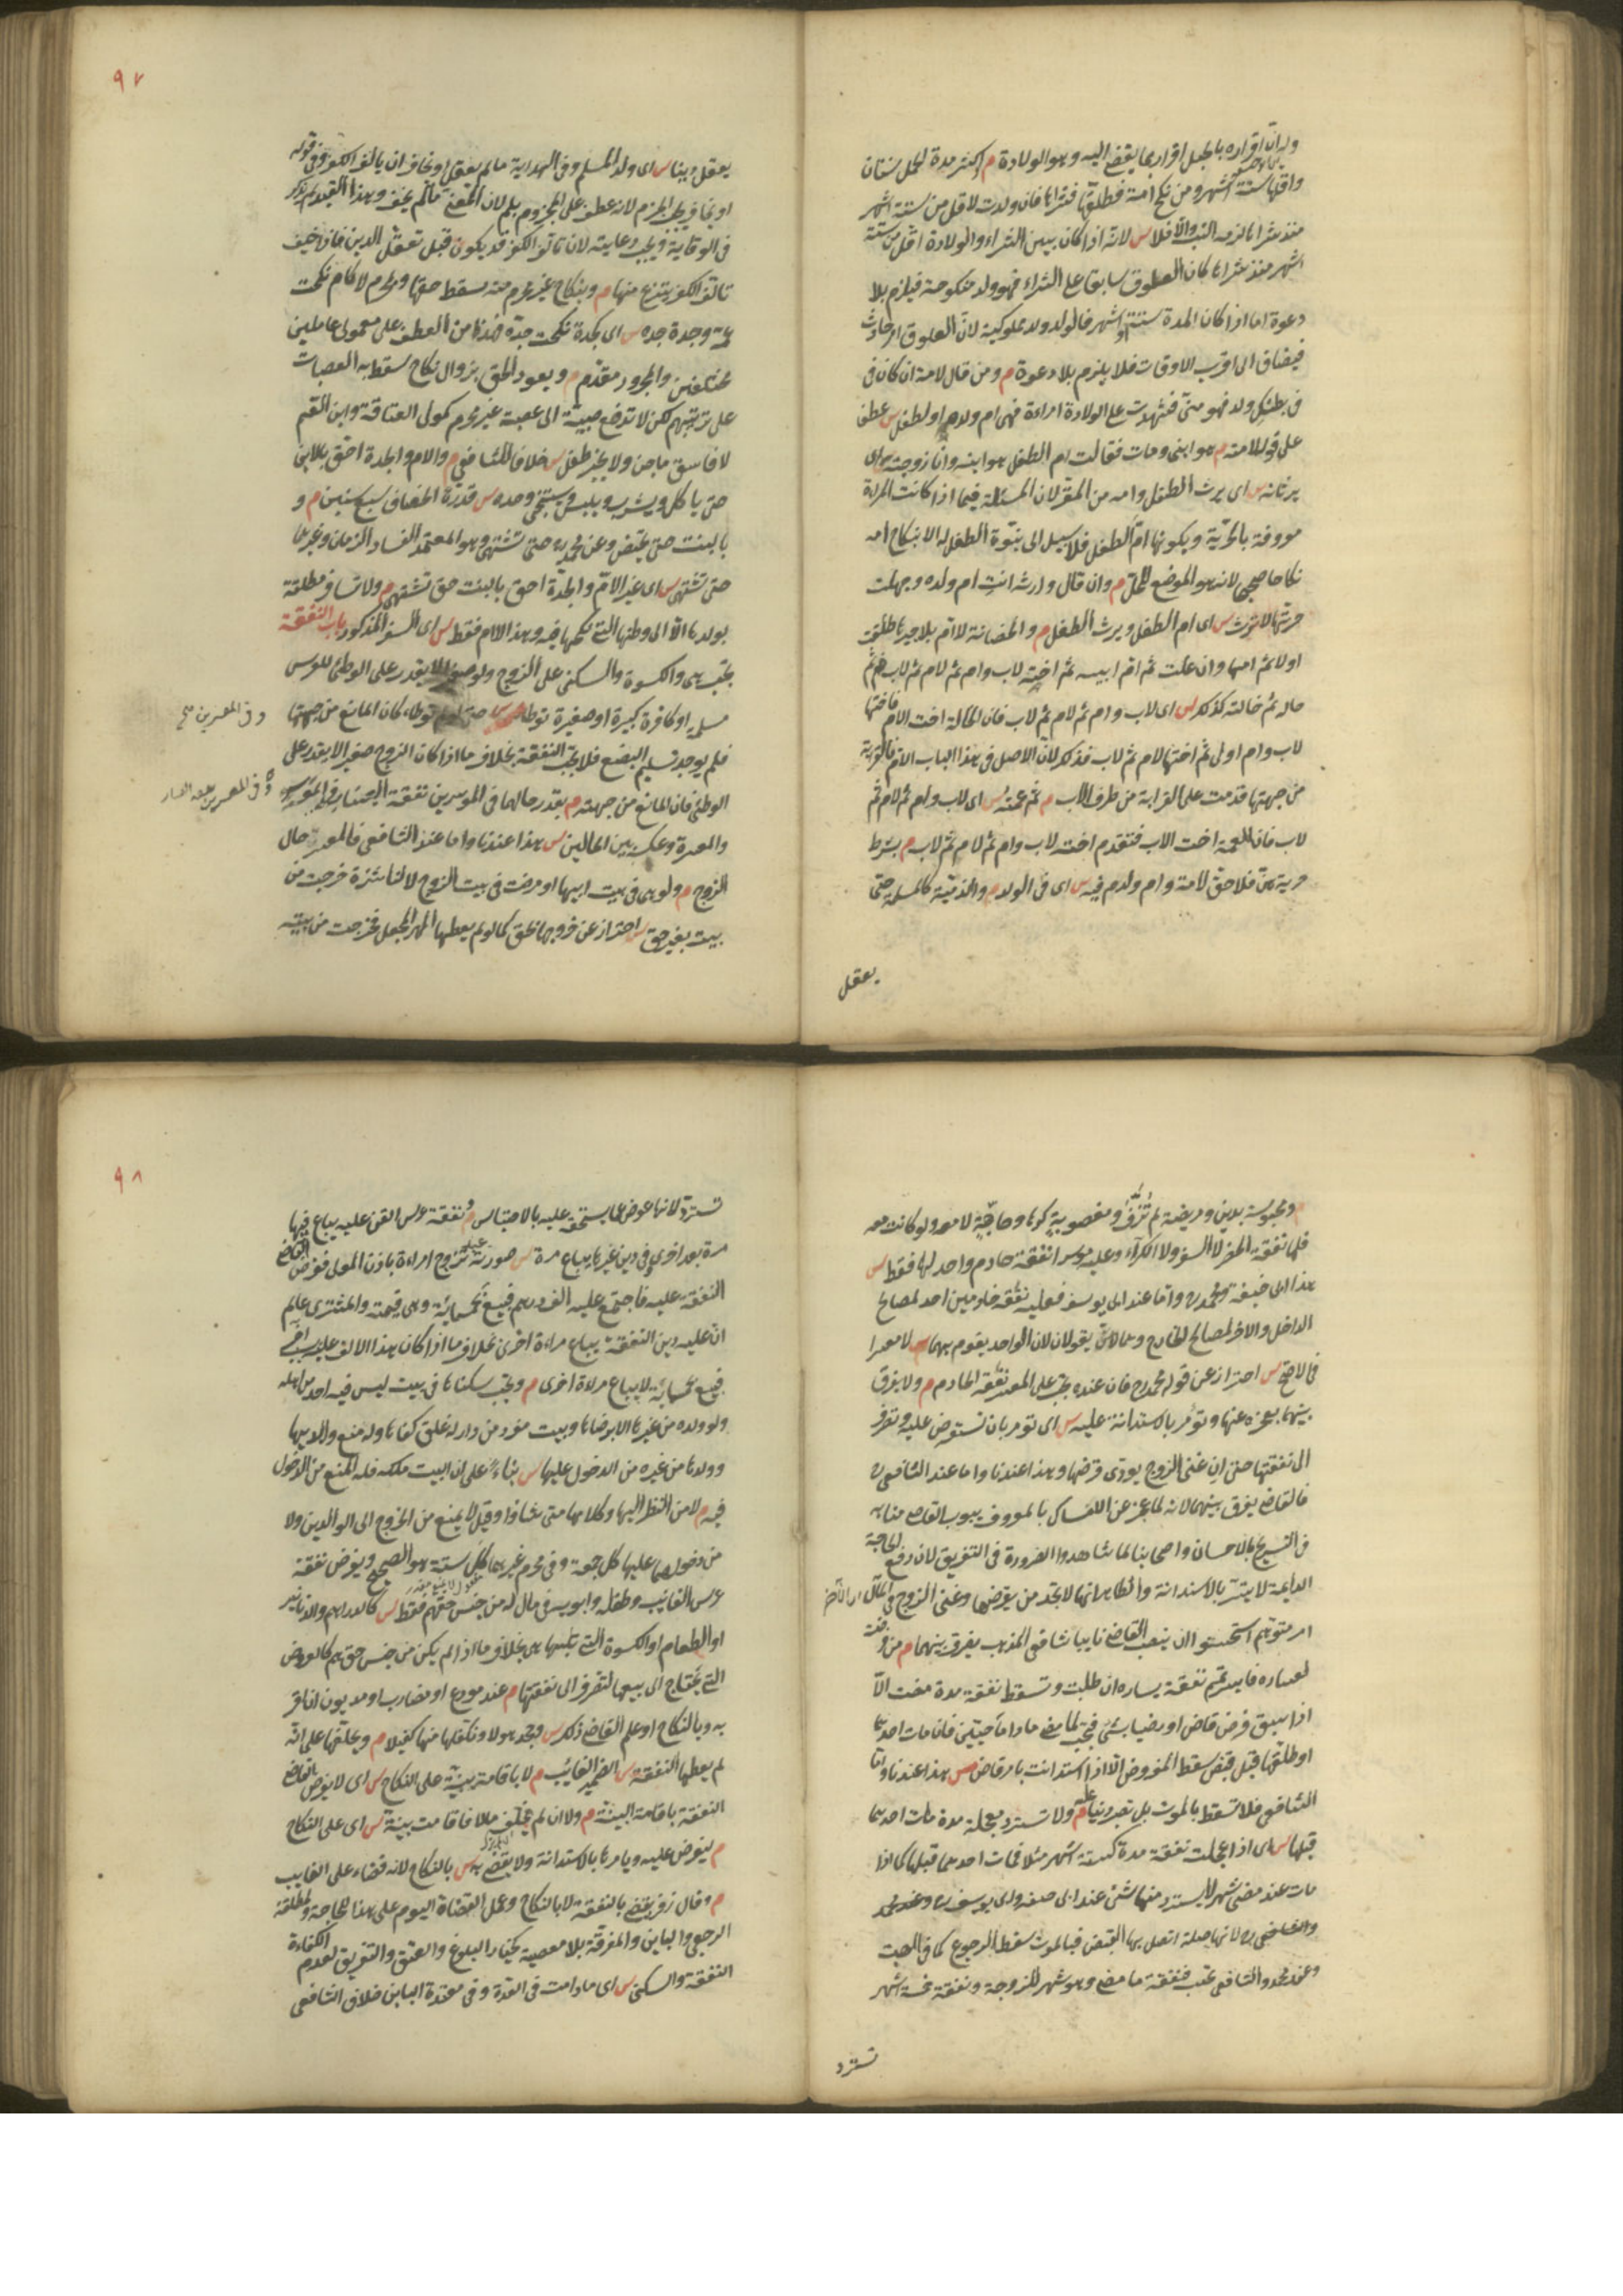 وله ان اقراره بالحبل اقرار بما يفضى اليه وهو الولادة م اكثر مدة الحمل سنتان
واقلها ستة اشهر ومن نكح امة فطلقها فشراها فان ولدت لاقل من ستة اشهر
منذ شراها لزمه النسب والا فلا س لانه اذا كان بين الشراء والولادة اقل من ستة
اشهر منذ شراها كان العلوق سابقا على الشراء فهو ولد منكوحة فيلزم بلا
دعوة اما اذا كان المدة ستة اشهر فالولد ولد مملوكة لان العلوق امر حادث
فيضاف الى اقرب الاوقات فلا يلزم بلا دعوة م ومن قال لامة ان كان فى
فى بطنك ولد فهو منى فشهدت على الولادة امراءة فهى ام ولده او لطفل س عطف
على قوله لامة م هو ابنى ومات فقالت ام الطفل هو ابنه وانا زوجته
يرثانه س اى يرث الطفل وامه من المقر لان المسئلة فيما اذا كانت المراة
معروفة بالحرية وبكونها ام الطفل فلا سبيل الى بنوة الطفل له الا بنكاح امه
نكاحا صحيحا لانه هو الموضوع للحل م وان قال وارثه انت ام ولده وجهلت
حريتها لا ترث س اى ام الطفل ويرث الطفل م والحضانة للام بلا جبرها طلقت
اولا ثم امها وان علت ثم ام ابيه ثم اخته لاب وام ثم لام ثم لاب ثم
خالته كذلك س اى لاب وام ثم لام ثم لاب فان الخالة اخت الام فاختها
لاب وام اولى ثم اختها لام ثم لاب فذلك لان الاصل فى هذا الباب الام فالقرابة
من جهتها قدمت على القرابة من طرف الاب م ثم عمته س اى لاب وام ثم لام ثم
لاب فان العمة اخت الاب فتقدم اخته لاب وام ثم لام ثم لاب م بشرط
حريتهن فلا حق لامة وام ولد فيه س اى فى الولد م والذمية كالمسلمة حتى
يعقل
٩٧
يعقل دينا س اى ولد المسلم وفى الهداية ما لم يعقل او يخاف ان يالف الكفر وفى قوله
او يخاف يجب الجزم لانه عطف على المجزوم بلم لان المعنى ما لم يخف وهذا القيد لم يذكر
فى الوقاية ويجب رعايته لان تالف الكفر قد يكون قبل تعقل الدين فان خيف
تالف الكفر ينزع منها م وبنكاح غير محرم منه يسقط حقها وبمحرم لا كام نكحت
عمه وجدة جده س اى كجدة نكحت جده هذا من العطف على معمولى عاملين
مختلفين والمجرور مقدم م ويعود الحق بزوال نكاح سقط به العصبات
على ترتيبهم لكن لا تدفع صبية الى عصبة غير محرم كمولى العتاقة وابن العم
لا فاسق ماجن ولا يخير طفل س خلافا للشافعى م والام والجدة احق بالابن
حتى ياكل ويشرب ويلبس ويستنجى وحده س قدره الخصاف سبع سنين م و
بالبنت حتى تحيض وعن محمد ره حتى تشتهى وهو المعتمد لفساد الزمان وغيرهما
حتى تشتهى س اى غير الام والجدة احق بالبنت حتى تشتهى م ولا تسافر مطلقة
بولدها الا الى وطنها التى نكحها فيه وهذا للام فقط س اى السفر المذكور باب النفقة
تجب هى والكسوة والسكنى على الزوج ولو صغيرا لا يقدر على الوطئ للعرس
مسلمة او كافرة كبيرة او صغيرة توطأ س حتى لو لم توطاء كان المانع من جهتها
فلم يوجد تسليم البضع فلا تجب النفقة بخلاف ما اذا كان الزوج صغيرا لا يقدر على
الوطئ فان المانع من جهته م بقدر حالهما فى الموسرين نفقة اليسار وفى الموسر
والمعسرة وعكسه بين الحالين س هذا عندنا واما عند الشافعى فالمعتبر حال
الزوج م ولو هى فى بيت ابيها او مرضت فى بيت الزوج لا لناشزة خرجت من
بيته بغير حق س احتراز عن خروجها بحق كما لو لم يعطها المهر المعجل فخرجت من بيته
وفى المعسرين صح
وفى المعسرين نفقة العسار
م ومحبوسة بدين ومريضة لم تزف ومغصوبة كرها وحاجة لا معه ولو كانت معه
فلها نفقة الحضر لا السفر ولا الكراء وعليه موسرا نفقة خادم واحد لها فقط س
هذا ابى حنيفة ومحمد ره واما عند ابى يوسف فعليه نفقة خادمين احد لمصالح
الداخل والاخر لمصالح الخارج وهما يقولان لان الواحد يقوم بهما م لا معسرا
فى الاصح س احتراز عن قول محمد ره فان عنده تجب على المعسر نفقة الخادم م ولا يفرق
بينهما بعجزه عنها وتؤمر بالاستدانة عليه س اى تؤمر بان تستقرض عليه وتصرف
الى نفقتها حتى ان غنى الزوج يودى قرضها وهذا عندنا واما عند الشافعى ره
فالقاضى يفرق بينهما لانه لما عجز عن الامساك بالمعروف ينوب القاضى منابه
فى التسريح بالاحسان واصحابنا لما شاهدوا الضرورة فى التفريق لان دفع الحاجة
الدايمة لا يتيسر بالاستدانة والظاهر انها لا تجد من يقرضها وغنى الزوج فى المآل
امر متوهم استحسنوا ان ينصب القاضى نايبا شافعى المذهب يفرق بينهما م ومن فرضت
لعساره فايسر تتم نفقة يساره ان طلبت وتسقط نفقة مدة مضت الا
اذا سبق فرض قاض او رضيا بشئ فتجب لما مضى ما داما حيين فان مات احدهما
او طلقها قبل قبض سقط المفروض الا اذا استدانت بامر قاض س هذا عندنا واما
الشافعى فلا تسقط بالموت بل تصير دينا عليه م ولا تسترد معجلة مدة مات احدهما
قبلها س اى اذا عجلت نفقة مدة كستة اشهر مثلا فمات احدهما قبلها كما اذا
مات عند مضى شهر لا يسترد منها شئ عند ابى حنيفه وابى يوسف ره وعند محمد
والشافعى ره لانها صلة اتصل بها القبض فبالموت سقط الرجوع كما فى الهبة
وعند محمد والشافعى تحتسب نفقة ما مضى وهو شهر للزوجة ونفقة خمسة اشهر
تسترد
٩٨
تسترد لانها عوض عما يستحقه عليه بالاحتباس م ونفقة عرس القن عليه يباع فيها
مرة بعد اخرى وفى دين غيرها يباع مرة س صورته عبد تزوج امراءة باذن المولى ففرض القاضى
النفقة عليه فاجتمع عليه الف درهم فبيع بخمسمائة وهى قيمته والمشترى عالم
ان عليه دين النفقة يباع مرة اخرى بخلاف ما اذا كان هذا الالف عليه بسبب اخر
فبيع بخمسمائة لا يباع مرة اخرى م وتجب سكناها فى بيت ليس فيه احد من اهله
ولو ولده من غيرها الا برضاها وبيت مفرد من دار له غلق كفاها وله منع والديها
وولدها من غيره من الدخول عليها س بناء على ان البيت ملكه فله المنع من الدخول
فيه م لا من النظر اليها وكلامها متى شاؤا وقيل لا يمنع من الخروج الى الوالدين ولا
من دخولهما عليها كل جمعة وفى محرم غيرهما كل سنة هو الصحيح ويفرض نفقة
عرس الغائب وطفله وابويه فى مال له من جنس حقهم فقط س كالدراهم والدنانير
او الطعام او الكسوة التى تلبسها هى بخلاف ما اذا لم يكن من جنس حقهم كالعروض
التى تحتاج الى بيعها لتصرف الى نفقتها م عند مودع او مضارب او مديون ان اقر
به وبالنكاح او علم القاضى ذلك س ويكفلها منها كفيلا م ويحلفها على انه
لم يعطها النفقة س الضمير الغائب م لا باقامة بينة على النكاح س اى لا يفرض القاضى
النفقة باقامة البينة م ولا ان لم يخلف مالا فاقامت بينة س اى على النكاح
م ليفرض عليه ويامرها بالاستدانة ولا يقضى به س بالنكاح لانه قضاء على الغايب
م وقال زفر يقضى بالنفقة لا بالنكاح وعمل القضاة اليوم على هذا للحاجة ولمطلقة
الرجعى والباين والمفرقة بلا معصية كخيار البلوغ والعتق والتفريق لعدم الكفاءة
النفقة والسكنى س اى ما دامت فى العدة وفى معتدة الباين خلاف الشافعى